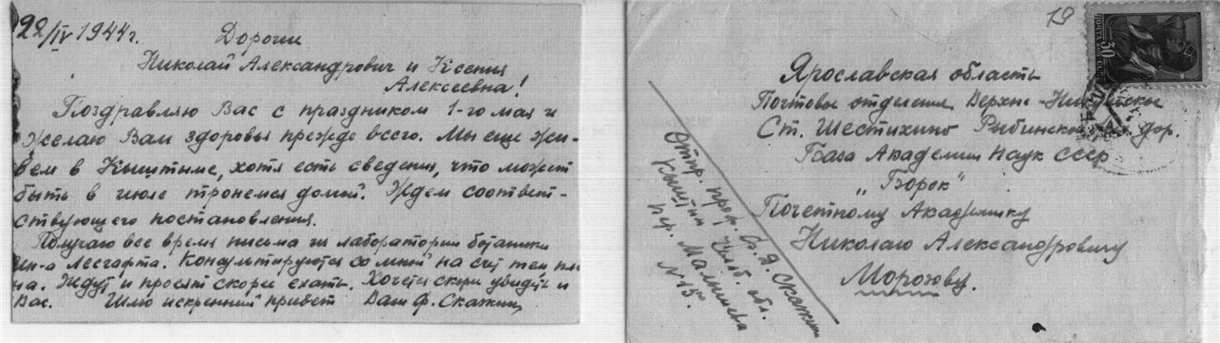 22/IV 1944г.
Дорогие
Николай Александрович и Ксения
Алексеевна!
Поздравляю Вас с праздником 1-го мая и
желаю Вам здоровья прежде всего. Мы еще жи-
вем в Кыштыме, хотя есть сведения, что может
быть в июле тронемся домой. Ждем соответ-
ствующего постановления.
Получаю все время письма из лаборатории ботаники
Ин-а Лесгафта. Консультируются со мной на счет тем пла-
на. Ждут и просят скорее ехать. Хочется скорее увидеть и
Вас. Шлю искренний привет Ваш Ф. Сказкин
19
ПОЧТА СССР
30
Ярославская область
Почтовое отделение Верхне-
Ст. Шестихино Рыбинской дор.
База Академии Наук СССР
„Борок"
Почетному Академику
Николаю Александровичу
Морозову.
Отпр. проф. Ф. Д. Сказкин
Кыштым, Челяб. обл.
пер. Малышева
N 15.